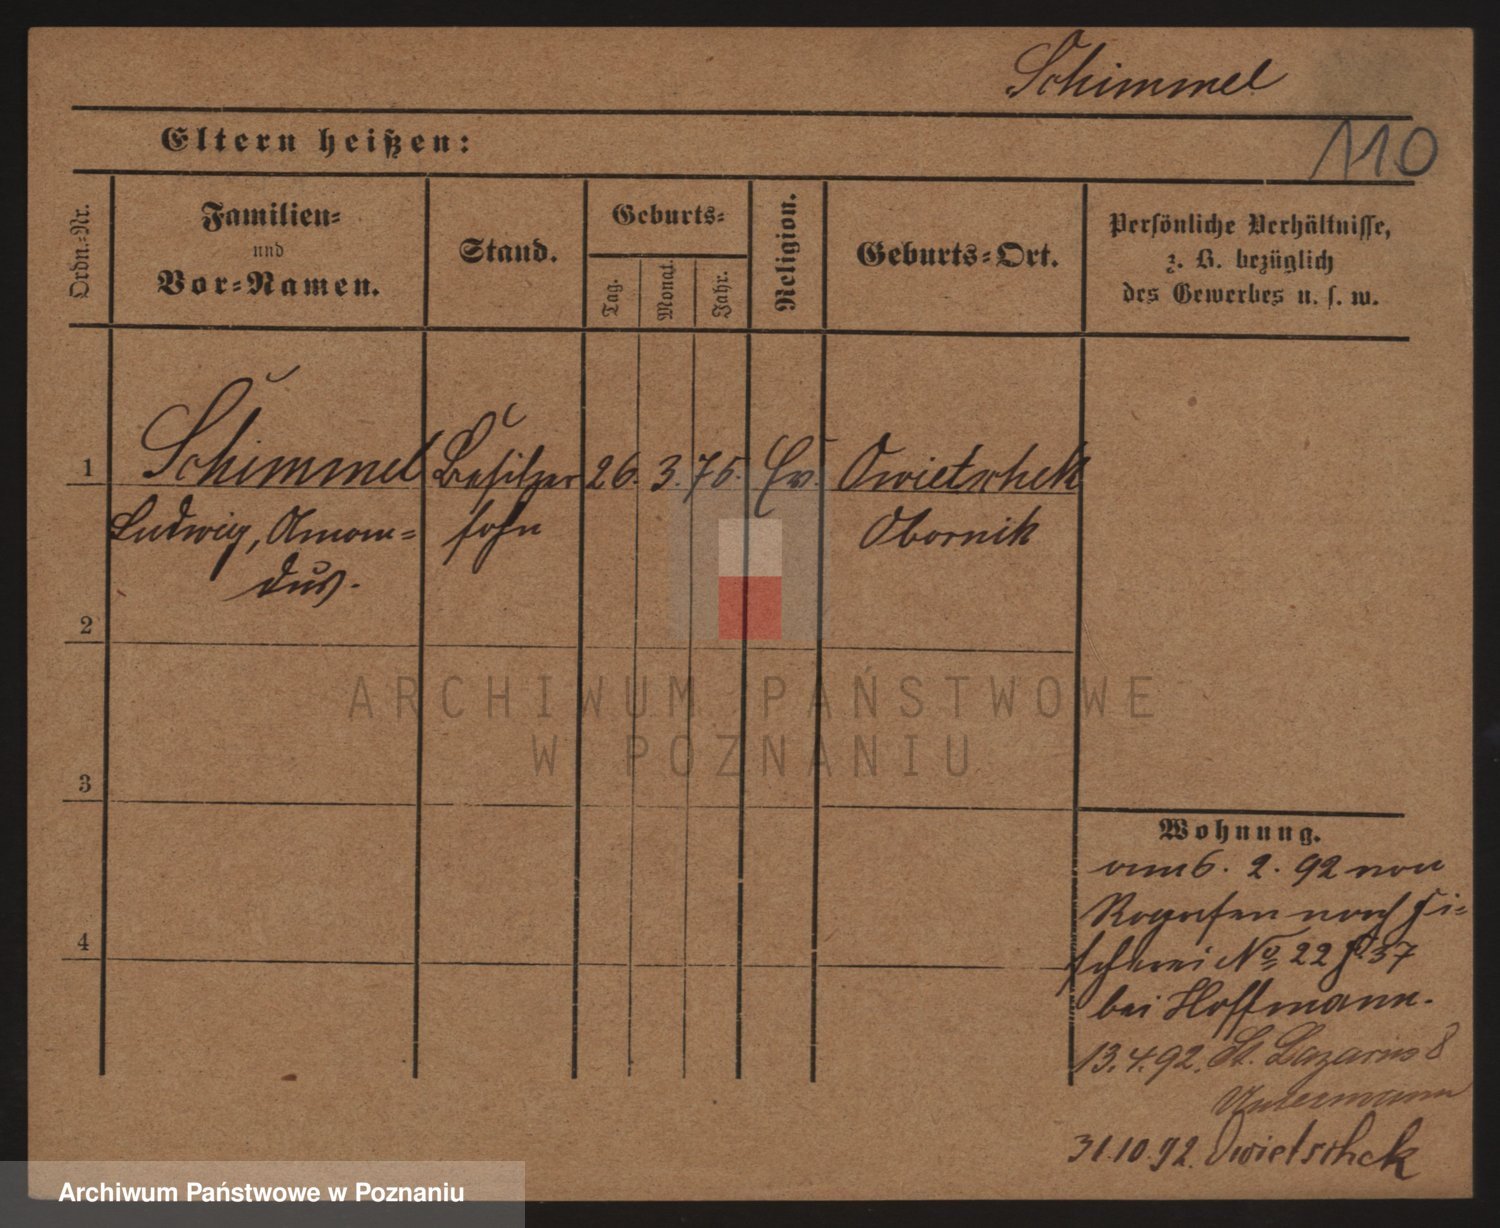 Schimmel
110
Eltern heißen:
Ordn.-Nr.
Familien-
und
Vor-Namen.
Stand.
Geburts-
Tag.
Monat.
Jahr.
Religion.
Geburts-Ort.
Persönliche Verhältnisse,
z. B. bezüglich
des Gewerbes u. s. w.
1
Schimmel Besitzer 26. 3. 75. Ev. Owietschek
Ludwig, Aman= sohn Obornik
dus.
2
3
4
Wohnung.
6. 2. 92 von
Rogasen nach Fi-
scherei No 22 37
bei Hoffmann.
13.4.92. St. Lazarus 8
31.10.92. Owietschek
ARCHIWUM PAŃSTWOWE
W POZNANIU
Archiwum Państwowe w Poznaniu